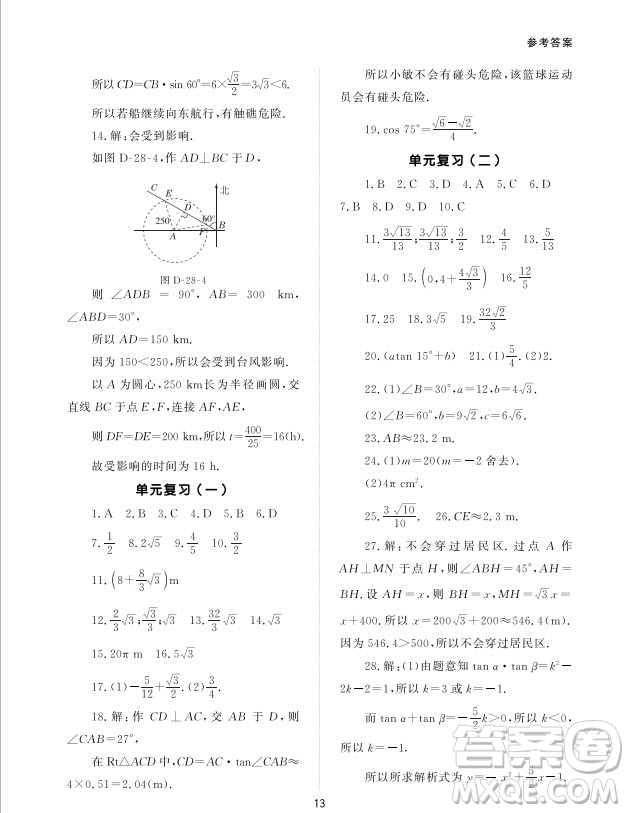 参考答案
所以 CD=CB·sin 60°=6×√3/2=3√3<6.
所以若船继续向东航行，有触礁危险.
14.解：会受到影响.
如图 D-28-4，作 AD⊥BC 于 D，
C E 北
D
250 60°
A F B
图 D-28-4
则 ∠ADB = 90°， AB = 300 km，
∠ABD=30°，
所以 AD=150 km.
因为 150<250，所以会受到台风影响.
以 A 为圆心，250 km 长为半径画圆，交
直线 BC 于点 E，F，连接 AF，AE，
则 DF=DE=200 km，所以 t=400/25=16(h).
故受影响的时间为 16 h.
单元复习（一）
1.A 2.B 3.C 4.B 5.B 6.D
7.1/2 8.2√5 9.4/5 10.3/2
11.(8+8/3√3)m
12.2/3√3；√3/3 13.32/3√3 14.√3
15.20π 16.√3
17.(1)−5/12+√3/2 (2)3/4
18.解：作 CD ⊥ AC，交 AB 于 D，则
∠CAB=27°，
在 Rt△ACD 中，CD = AC·tan∠CAB =
4×0.51=2.04(m).
所以小敏有碰头危险，该篮球运动
员会有碰头危险.
19.cos 75°=(√6−√2)/4.
单元复习（二）
1.B 2.C 3.D 4.A 5.C 6.D
7.B 8.D 9.D 10.C
11.3√13/13；3√13/13；3/2 12.4/5 13.5/13
14.0 15.(0,4+4√3/3) 16.12/5
17.25 18.3√5 19.32√2/3
20.(atan 15°+b) 21.(1)5/4.(2)2.
22.(1)∠B=60°，a=12，b=4√3.
(2)∠B=60°，b=9√2，c=6√6.
23.AB≈23.2 m.
24.(1)m=20(m=−2 舍去).
(2)4π cm².
25.3√10/10. 26.CE≈2 m.
27.解：不会穿过居民区.过点 A 作
AH⊥MN 于点 H，则∠ABH=45°，AH=
BH.设 AH = x，则 BH = x，MH=√3x =
x+400.所以 x=200√3+200≈546.4(m).
因为 546.4>500，所以不会穿过居民区.
28.解：(1)由题意知 tan α·tan β=k²−
2k−2=1，所以 k=3 或 k=−1.
而 tan α+tan β=−5/2k>0，所以 k<0，
所以 k=−1.
所以所求解析式为 y=−x²+5/2x−1.
答案圈
13